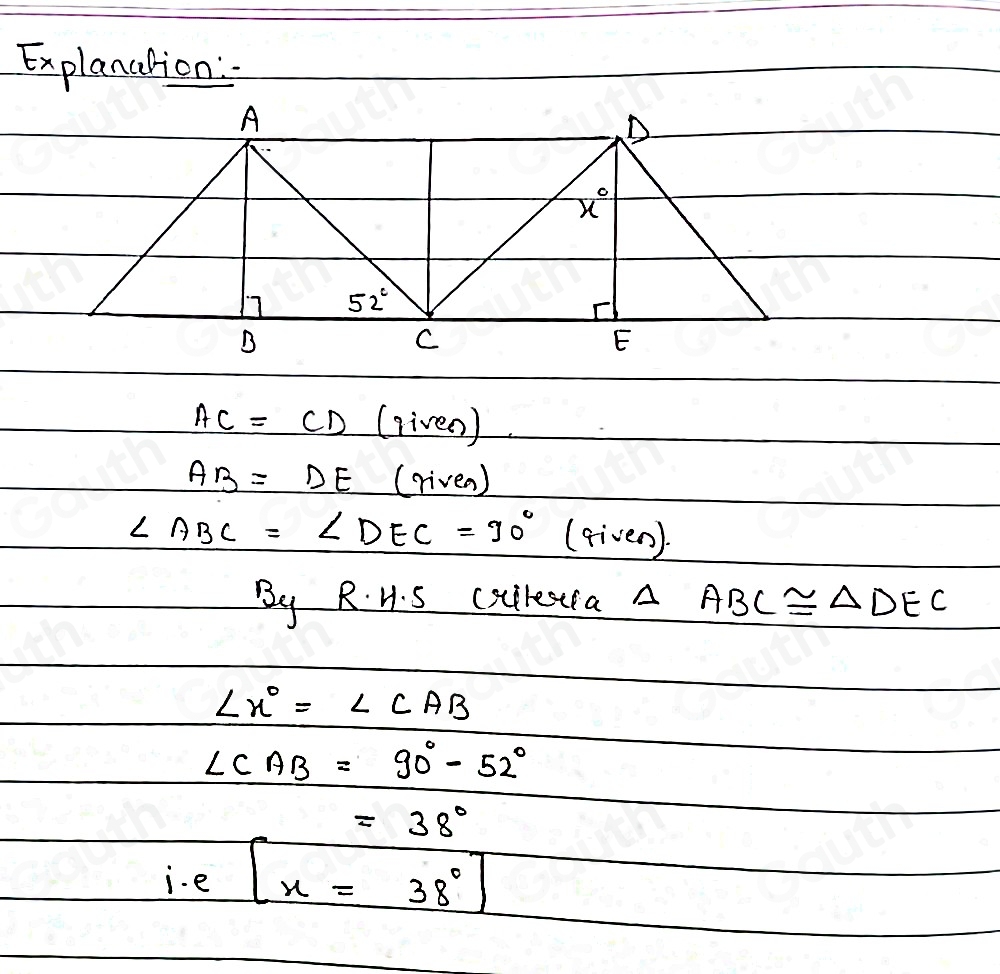 Explanation:-
A D
x°
52°
B C E
AC = CD (given).
AB = DE (given)
∠ABC = ∠DEC = 90° (given).
By R.H.S criteria Δ ABC ≅ Δ DEC
∠x° = ∠CAB
∠CAB = 90° - 52°
= 38°
i.e x = 38°
Gauth